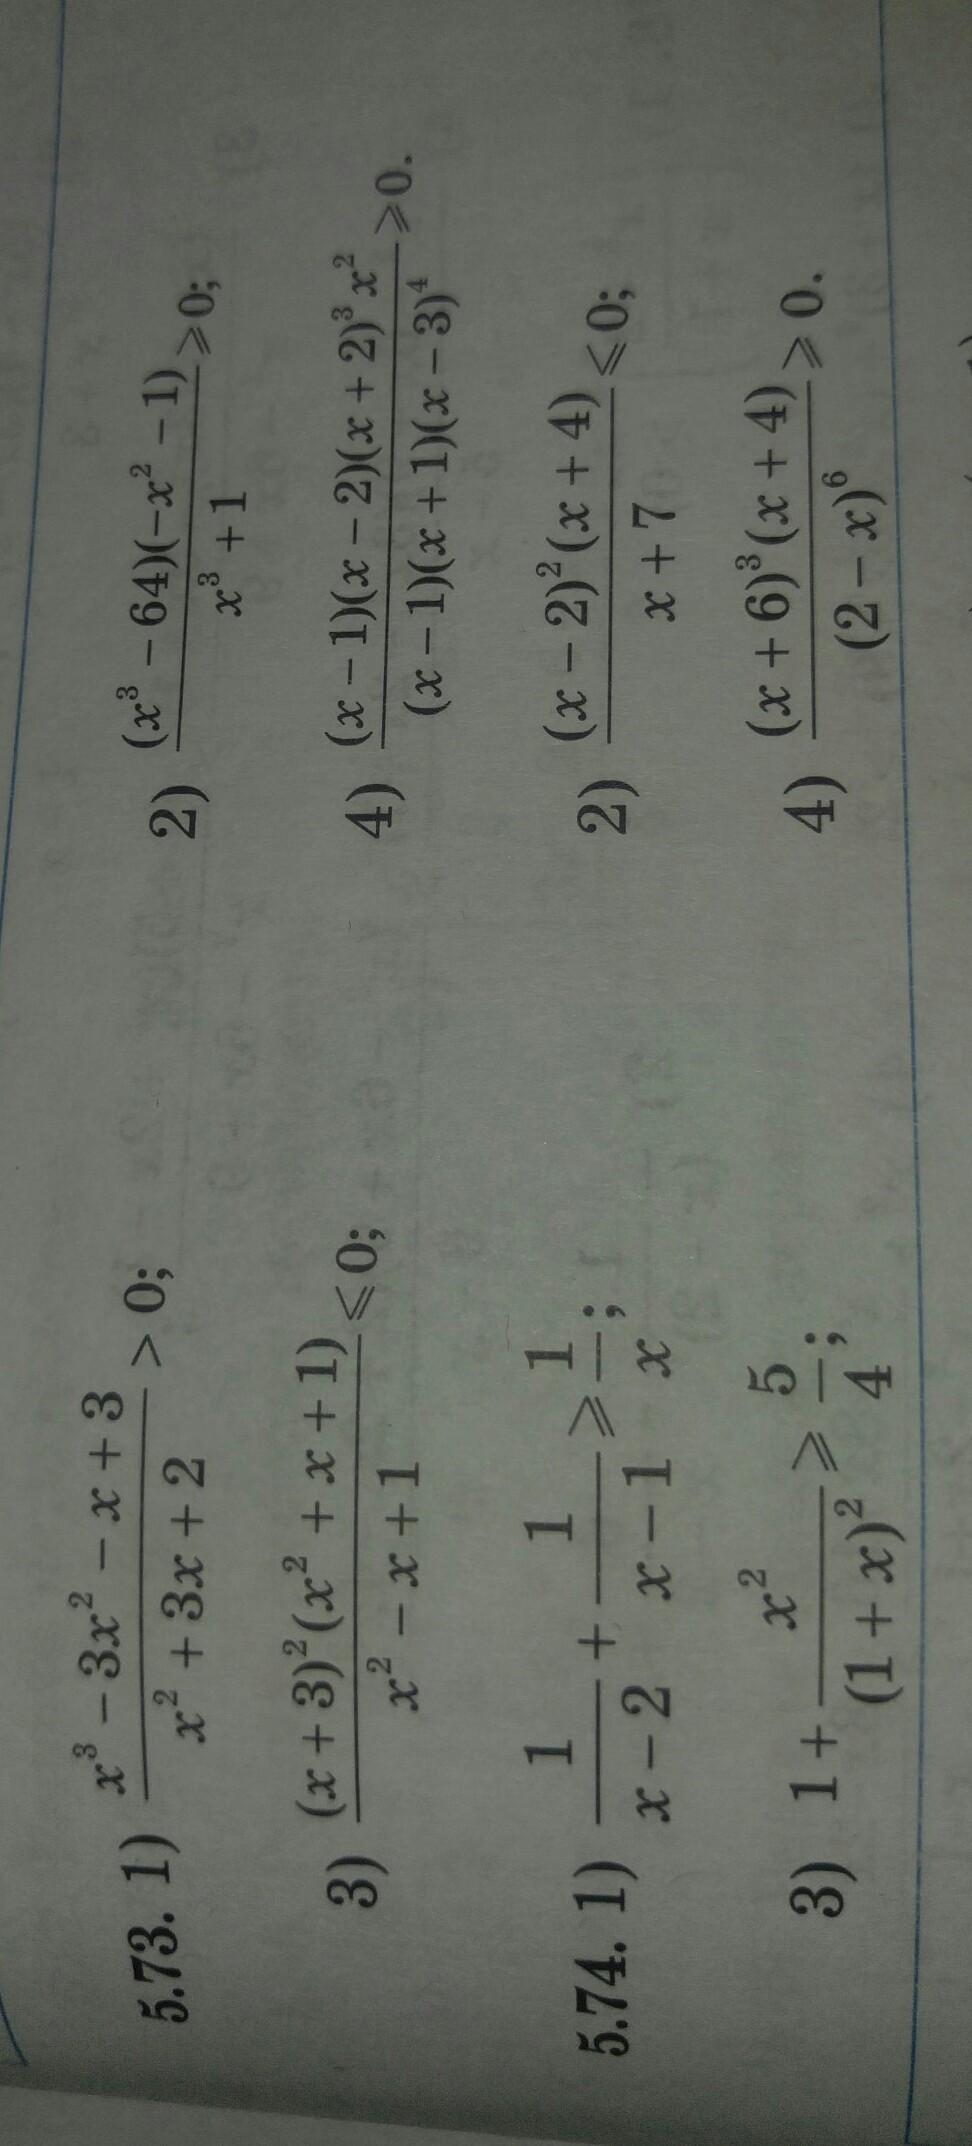 5.73. 1) (x³ − 3x² − x + 3)/(x² + 3x + 2) > 0; 2) ((x³ − 64)(−x² − 1))/(x³ + 1) ⩾ 0;
3) ((x + 3)²(x² + x + 1))/(x² − x + 1) ⩽ 0; 4) ((x − 1)(x − 2)(x + 2)³x²)/((x − 1)(x + 1)(x − 3)⁴) ⩾ 0.
5.74. 1) 1/(x − 2) + 1/(x − 1) ⩾ 1/x; 2) ((x − 2)²(x + 4))/(x + 7) ⩽ 0;
3) 1 + x²/(1 + x)² ⩾ 5/4; 4) ((x + 6)³(x + 4))/(2 − x)⁶ ⩾ 0.